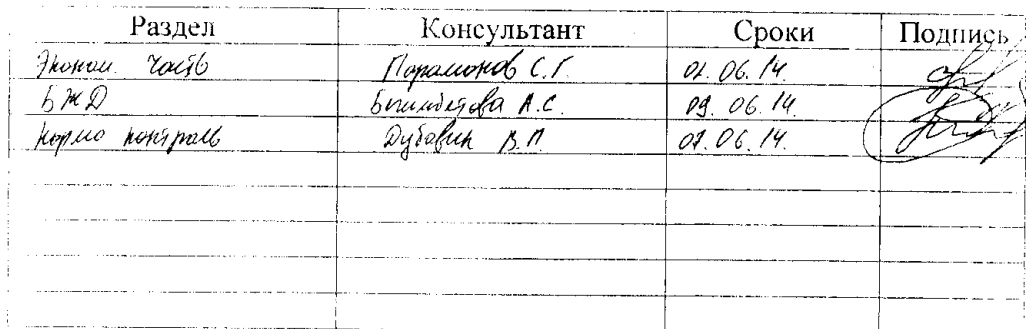 Раздел Консультант Сроки Подпись
Эконом. часть Парамонов С.Г. 02.06.14.
БЖД А.С. 09.06.14.
Нормо контроль Дубовик В.П. 07.06.14.